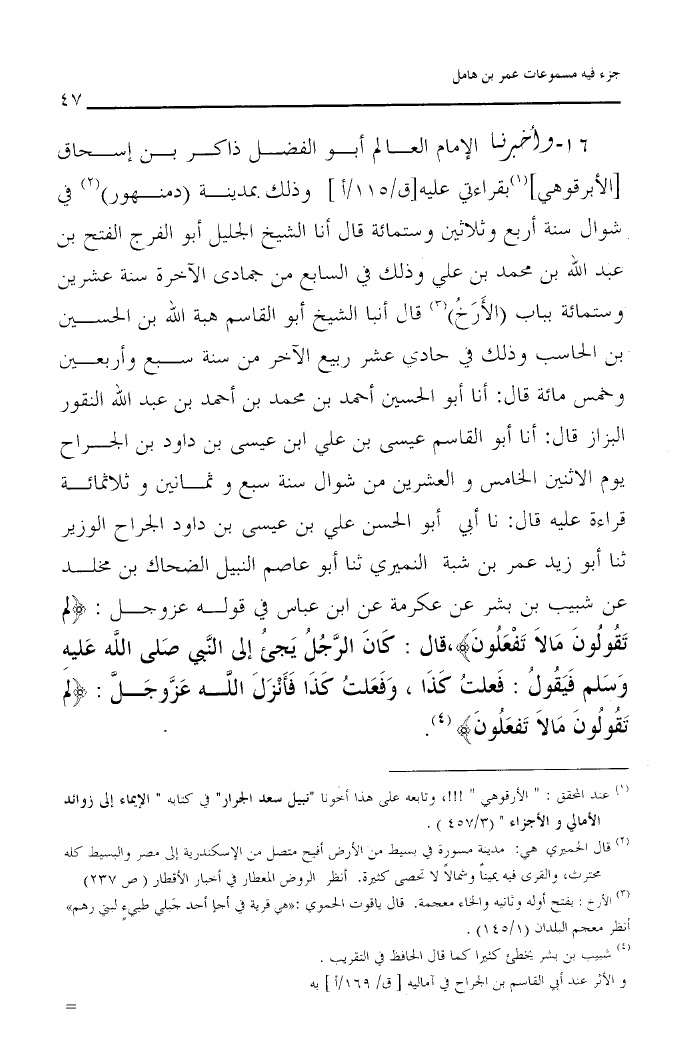 جزء فيه مسموعات عمر بن هامل
٤٧
١٦-وأخبرنا الإمام العالم أبو الفضل ذاكر بن إسحاق
[الأبرقوهي](١)بقراءتي عليه[ق/١١٥/أ ] وذلك بمدينة (دمنهور)(٢) في
شوال سنة أربع وثلاثين وستمائة قال أنا الشيخ الجليل أبو الفرج الفتح بن
عبد الله بن محمد بن علي وذلك في السابع من جمادى الآخرة سنة عشرين
وستمائة بباب (الأَرَخُ)(٣) قال أنبا الشيخ أبو القاسم هبة الله بن الحسين
بن الحاسب وذلك في حادي عشر ربيع الآخر من سنة سبع وأربعين
وخمس مائة قال: أنا أبو الحسين أحمد بن محمد بن أحمد بن عبد الله النقور
البزاز قال: أنا أبو القاسم عيسى بن علي ابن عيسى بن داود بن الجراح
يوم الاثنين الخامس و العشرين من شوال سنة سبع و ثمانين و ثلاثمائة
قراءة عليه قال: نا أبي أبو الحسن علي بن عيسى بن داود الجراح الوزير
ثنا أبو زيد عمر بن شبة النميري ثنا أبو عاصم النبيل الضحاك بن مخلد
عن شبيب بن بشر عن عكرمة عن ابن عباس في قوله عزوجل : ﴿لم
تَقُولُونَ مَالاَ تَفْعَلُونَ﴾،قال : كَانَ الرَّجُلُ يَجئُ إلى النَّبي صَلى اللَّه عَليه
وَسَلم فَيَقُولُ : فَعلتُ كَذَا ، وَفَعَلتُ كَذَا فَأَنْزَلَ اللَّه عَزَّوجَلَّ : ﴿لمَ
تَقُولُونَ مَالاَ تَفعَلُونَ﴾ (٤).
(١) عند المحقق : " الأرقوهي " !!!، وتابعه على هذا أخونا "نبيل سعد الجرار" في كتابه " الإيماء إلى زوائد
الأمالي و الأجزاء " (٤٥٧/٣) .
(٢) قال الحميري هي: مدينة مسورة في بسيط من الأرض أفيح متصل من الإسكندرية إلى مصر والبسيط كله
محترث، والقرى فيه يميناً وشمالاً لا تحصى كثيرة. أنظر الروض المعطار في أخبار الأقطار ( ص ٢٣٧)
(٣) الأرخ : بفتح أوله وثانيه والخاء معجمة. قال ياقوت الحموي :«هي قرية في أجإ أحد جَبلي طييءٍ لبني رهم»
أنظر معجم البلدان (١٤٥/١) .
(٤) شبيب بن بشر يخطئ كثيرا كما قال الحافظ في التقريب .
و الأثر عند أبي القاسم بن الجراح في آماليه [ ق/ ١٦٩/أ ] به
=